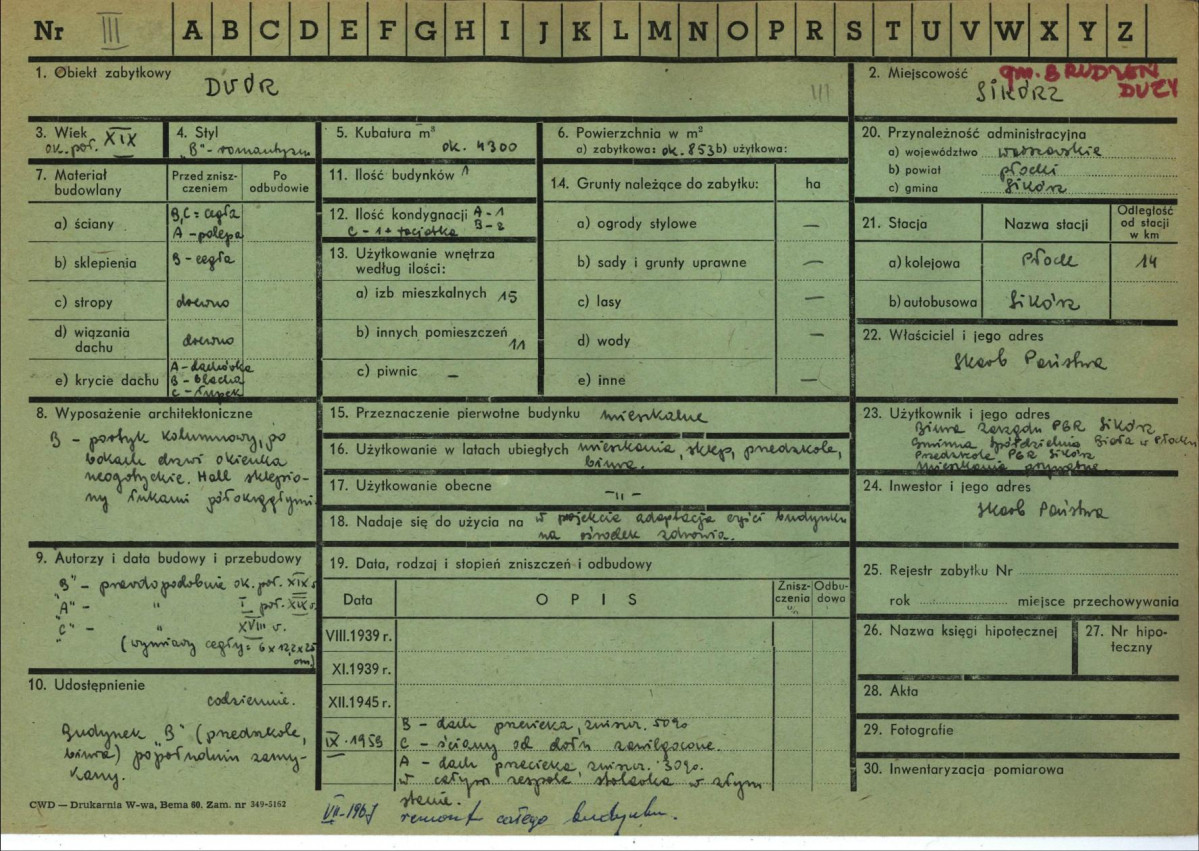 Nr III A B C D E F G H I J K L M N O P R S T U V W X Y Z
1. Obiekt zabytkowy
DWÓR
III
2. Miejscowość gm. BRUDZEŃ
DUŻY
SIKÓRZ
3. Wiek
ok. poł. XIX
4. Styl
„B" - romantyzm
5. Kubatura m³
ok. 4300
6. Powierzchnia w m²
a) zabytkowa: ok. 853 b) użytkowa:
7. Materiał budowlany
Przed zniszczeniem
Po odbudowie
a) ściany
B, C = cegła
A - polepa
b) sklepienia B - cegła
c) stropy drewno
d) wiązania dachu drewno
e) krycie dachu
A - dachówka
B - blacha
C - łupek
8. Wyposażenie architektoniczne
B - portyk kolumnowy, po
bokach drzwi okienka
neogotyckie. Hall sklepio-
ny łukami półokrągłymi.
9. Autorzy i data budowy i przebudowy
„B" - prawdopodobnie ok. poł. XIX w.
„A" - " I poł. XIX w.
„C" - " XVIII w.
(wymiary cegły = 6 x 12,2 x 25
cm)
10. Udostępnienie
codziennie.
Budynek „B" (przedszkole,
biura) popołudniu zamy-
kany.
CWD — Drukarnia W-wa, Bema 60. Zam. nr 349-5162
11. Ilość budynków 1
12. Ilość kondygnacji A - 1
B - 2
C - 1 +
13. Użytkowanie wnętrza
według ilości:
a) izb mieszkalnych 15
b) innych pomieszczeń
11
c) piwnic —
14. Grunty należące do zabytku: ha
a) ogrody stylowe —
b) sady i grunty uprawne —
c) lasy —
d) wody —
e) inne —
15. Przeznaczenie pierwotne budynku mieszkalne
16. Użytkowanie w latach ubiegłych mieszkania, sklep, przedszkole,
biura.
17. Użytkowanie obecne
-"-
18. Nadaje się do użycia na w projekcie adaptacja części budynku
na ośrodek zdrowia.
19. Data, rodzaj i stopień zniszczeń i odbudowy
Data
O P I S
Zniszczenia %
Odbudowa
VIII.1939 r.
XI.1939 r.
XII.1945 r.
IX.1959
B - dach przecieka, zniszcz. 50%
C - ściany od dołu zawilgocone.
A - dach przecieka, zniszcz. 30%.
w całym zespole stolarka w złym
stanie.
remont całego budynku.
20. Przynależność administracyjna
a) województwo warszawskie
b) powiat płocki
c) gmina Sikórz
21. Stacja
Nazwa stacji
Odległość od stacji w km
a) kolejowa Płock 14
b) autobusowa Sikórz
22. Właściciel i jego adres
Skarb Państwa
23. Użytkownik i jego adres
Biura Zarządu PGR Sikórz
Gminna Spółdzielnia Biała w Płocku
Przedszkole PGR Sikórz
mieszkania prywatne
24. Inwestor i jego adres
Skarb Państwa
25. Rejestr zabytku Nr
rok miejsce przechowywania
26. Nazwa księgi hipotecznej
27. Nr hipoteczny
28. Akta
29. Fotografie
30. Inwentaryzacja pomiarowa